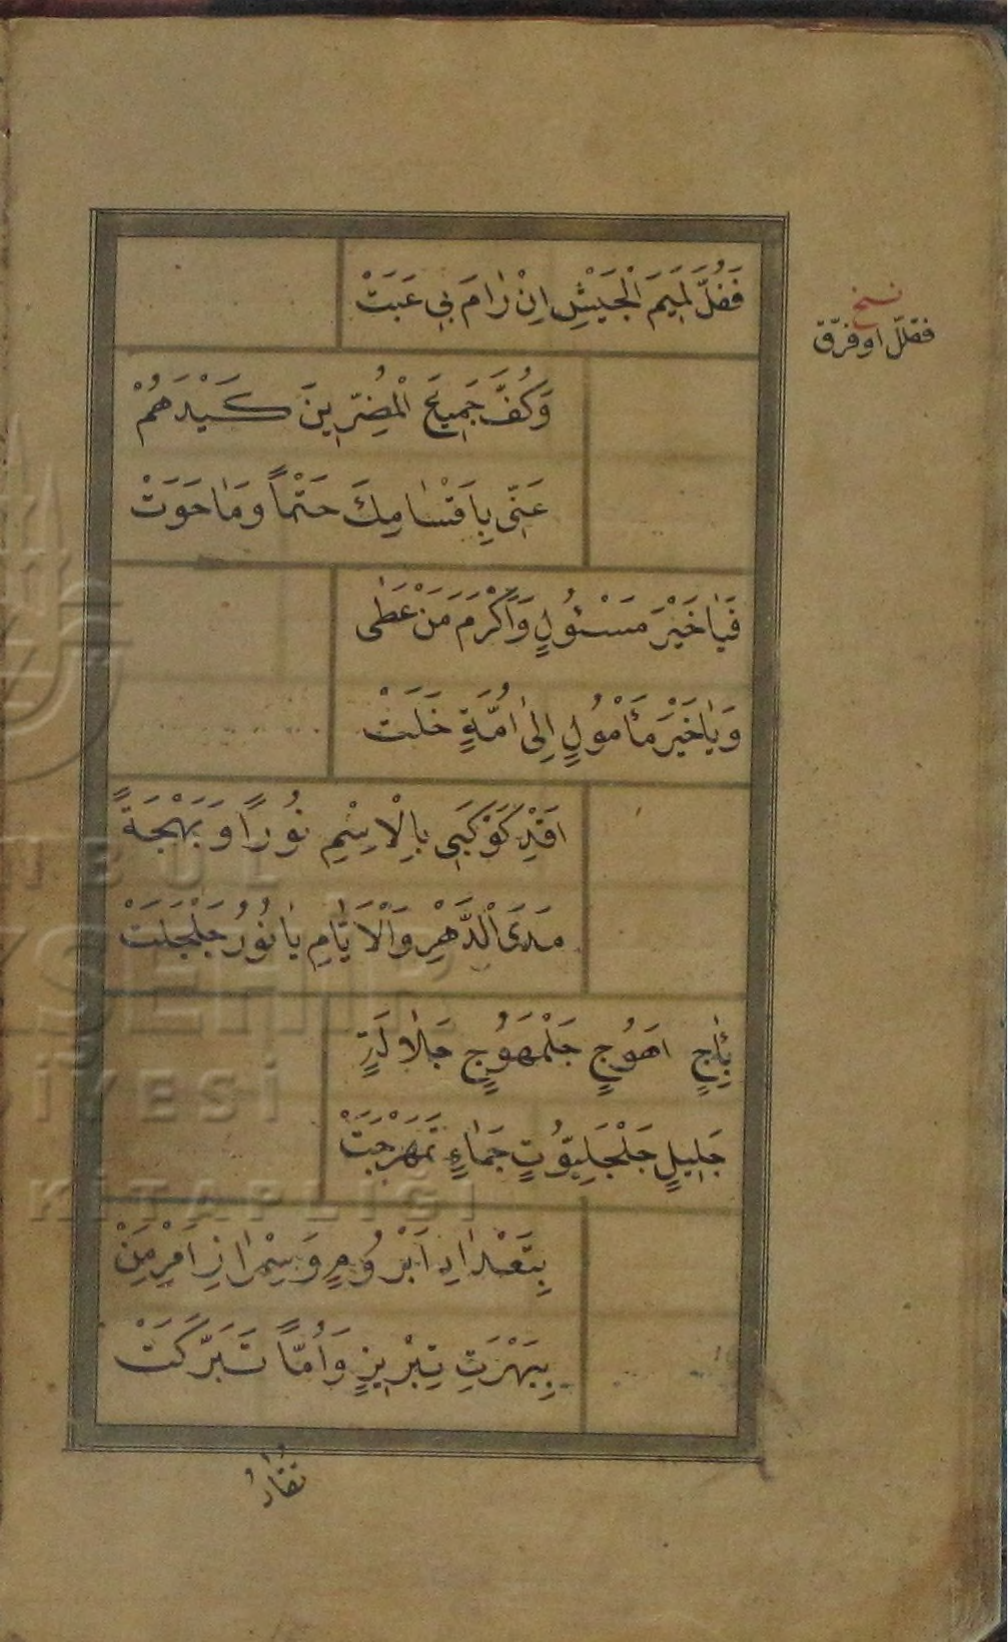 فَفُلَّ لَمِيمَ الْجَيْشِ اِنْ رٰامَ بِي عَبَتْ
نسخ
فقلل او فرّق
وَكُفَّ جَمِيعَ الْمُضِرِّينَ كَيْدَهُمْ
عَنِّى بِاَقْسٰامِكَ حَتْمًا وَمٰا حَوَتْ
فَيٰا خَيْرَ مَسْئُولٍ وَاَكْرَمَ مَنْ عَطٰى
وَيٰا خَيْرَ مَأْمُولٍ اِلىٰ اُمَّةٍ خَلَتْ
اَقِدْ كَوْكَبِى بِالْاِسْمِ نُورًا وَبَهْجَةً
مَدَى الْدَّهْرِ وَالْاَيّٰامِ يٰا نُورُ جَلْجَلَتْ
بِئٰاجٍ اَهُوجٍ جَلْمَهُوجٍ جَلٰالَةٍ
جَلِيلٍ جَلْجَلِيَّوُتٍ جَمٰاءٍ تَمَهْرَجَتْ
بِتَعْدٰادِ اَبْرُومٍ وَسِمْرٰازِ اَمْرِمَنْ
بِبَهْرَتِ تِبْرِيزٍ وَاُمًّا تَبَرَّكَتْ
تقادُ